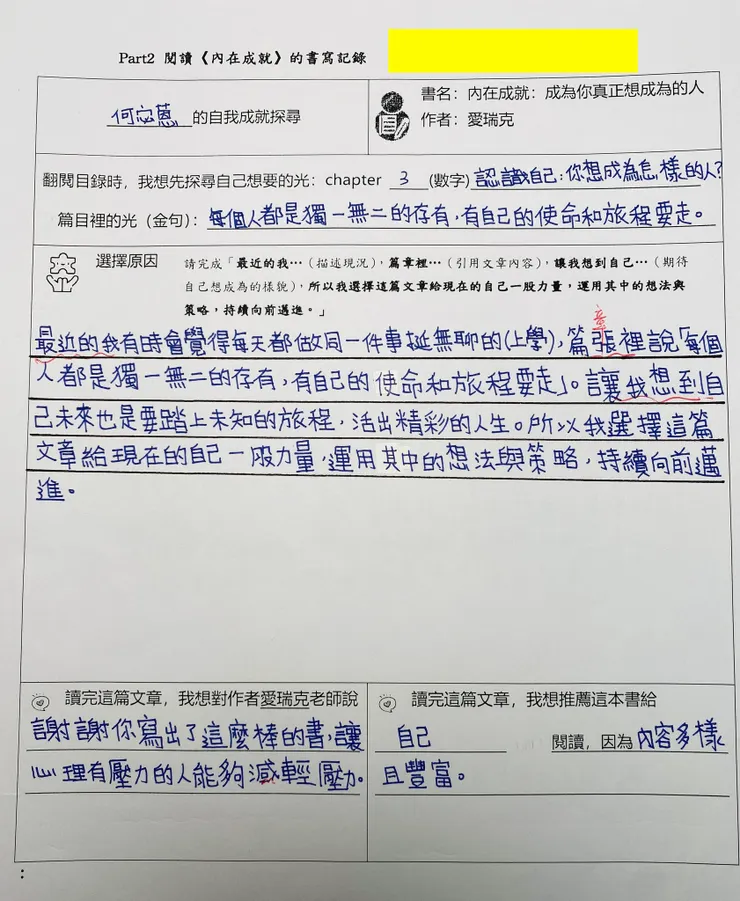 Part2 閱讀《內在成就》的書寫記錄
何宓蒽 的自我成就探尋
書名：內在成就：成為你真正想成為的人
作者：愛瑞克
翻閱目錄時，我想先探尋自己想要的光：chapter 3 (數字) 認識自己：你想成為怎樣的人?
篇目裡的光（金句）：每個人都是獨一無二的存有，有自己的使命和旅程要走。
選擇原因
請完成「最近的我…（描述現況），篇章裡…（引用文章內容），讓我想到自己…（期待
自己想成為的樣貌），所以我選擇這篇文章給現在的自己一股力量，運用其中的想法與
策略，持續向前邁進。」
章
最近的我有時會覺得每天都做同一件事挺無聊的(上學)，篇張裡說「每個
人都是獨一無二的存有，有自己的使命和旅程要走」。讓我想到自
己未來也是要踏上未知的旅程，活出精彩的人生。所以我選擇這篇
文章給現在的自己一股力量，運用其中的想法與策略，持續向前邁
進。
讀完這篇文章，我想對作者愛瑞克老師說
謝謝你寫出了這麼棒的書，讓
心理有壓力的人能夠減輕壓力。
讀完這篇文章，我想推薦這本書給
自己 閱讀，因為內容多樣
且豐富。